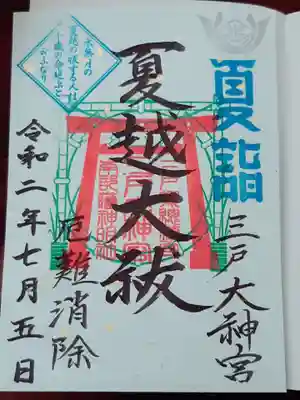 夏詣
三戸大神宮
夏越大祓
厄難消除
令和二年七月五日
水無月の
夏越の祓する人は
千歳の命延ぶと
いふなり